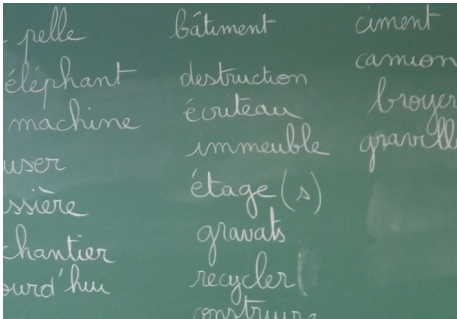 pelle
éléphant
machine
user
ssière
chantier
ourd'hui
bâtiment
destruction
écriteau
immeuble
étage(s)
gravats
recycler
construire
ciment
camion
broyer
gravill